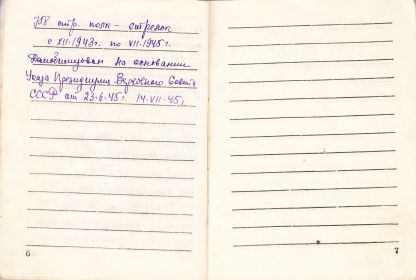 758 стр. полк - стрелок
с XII-1943г. по VII-1945г.
Демобилизован на основании
Указа Президиума Верховного Совета
СССР от 23.6.45г. 14.VII.45г
6
7